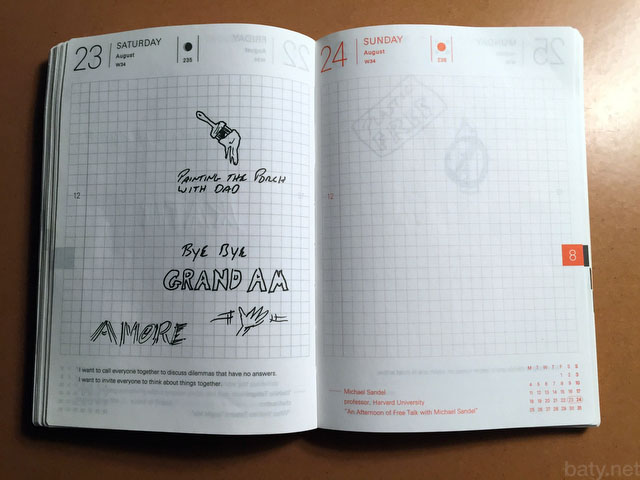 23
SATURDAY
August
W34
235
PAINTING THE PORCH
WITH DAD
12
BYE BYE
GRAND AM
AMORE
I want to call everyone together to discuss dilemmas that have no answers.
I want to invite everyone to think about things together.
24
SUNDAY
August
W34
236
12
8
Michael Sandel
professor, Harvard University
"An Afternoon of Free Talk with Michael Sandel"
M T W T F S S
1 2 3
4 5 6 7 8 9 10
11 12 13 14 15 16 17
18 19 20 21 22 23 24
25 26 27 28 29 30 31
baty.net